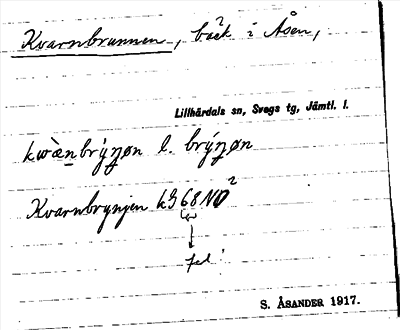 Kvarnbrunnen, bäck i Åsen,
Lillhärdals sn, Svegs tg, Jämtl. l.
kwæ̀nbrýŋøn l. brýŋøn
Kvarnbrynjen kG 68 NO²
fel
S. ÅSANDER 1917.